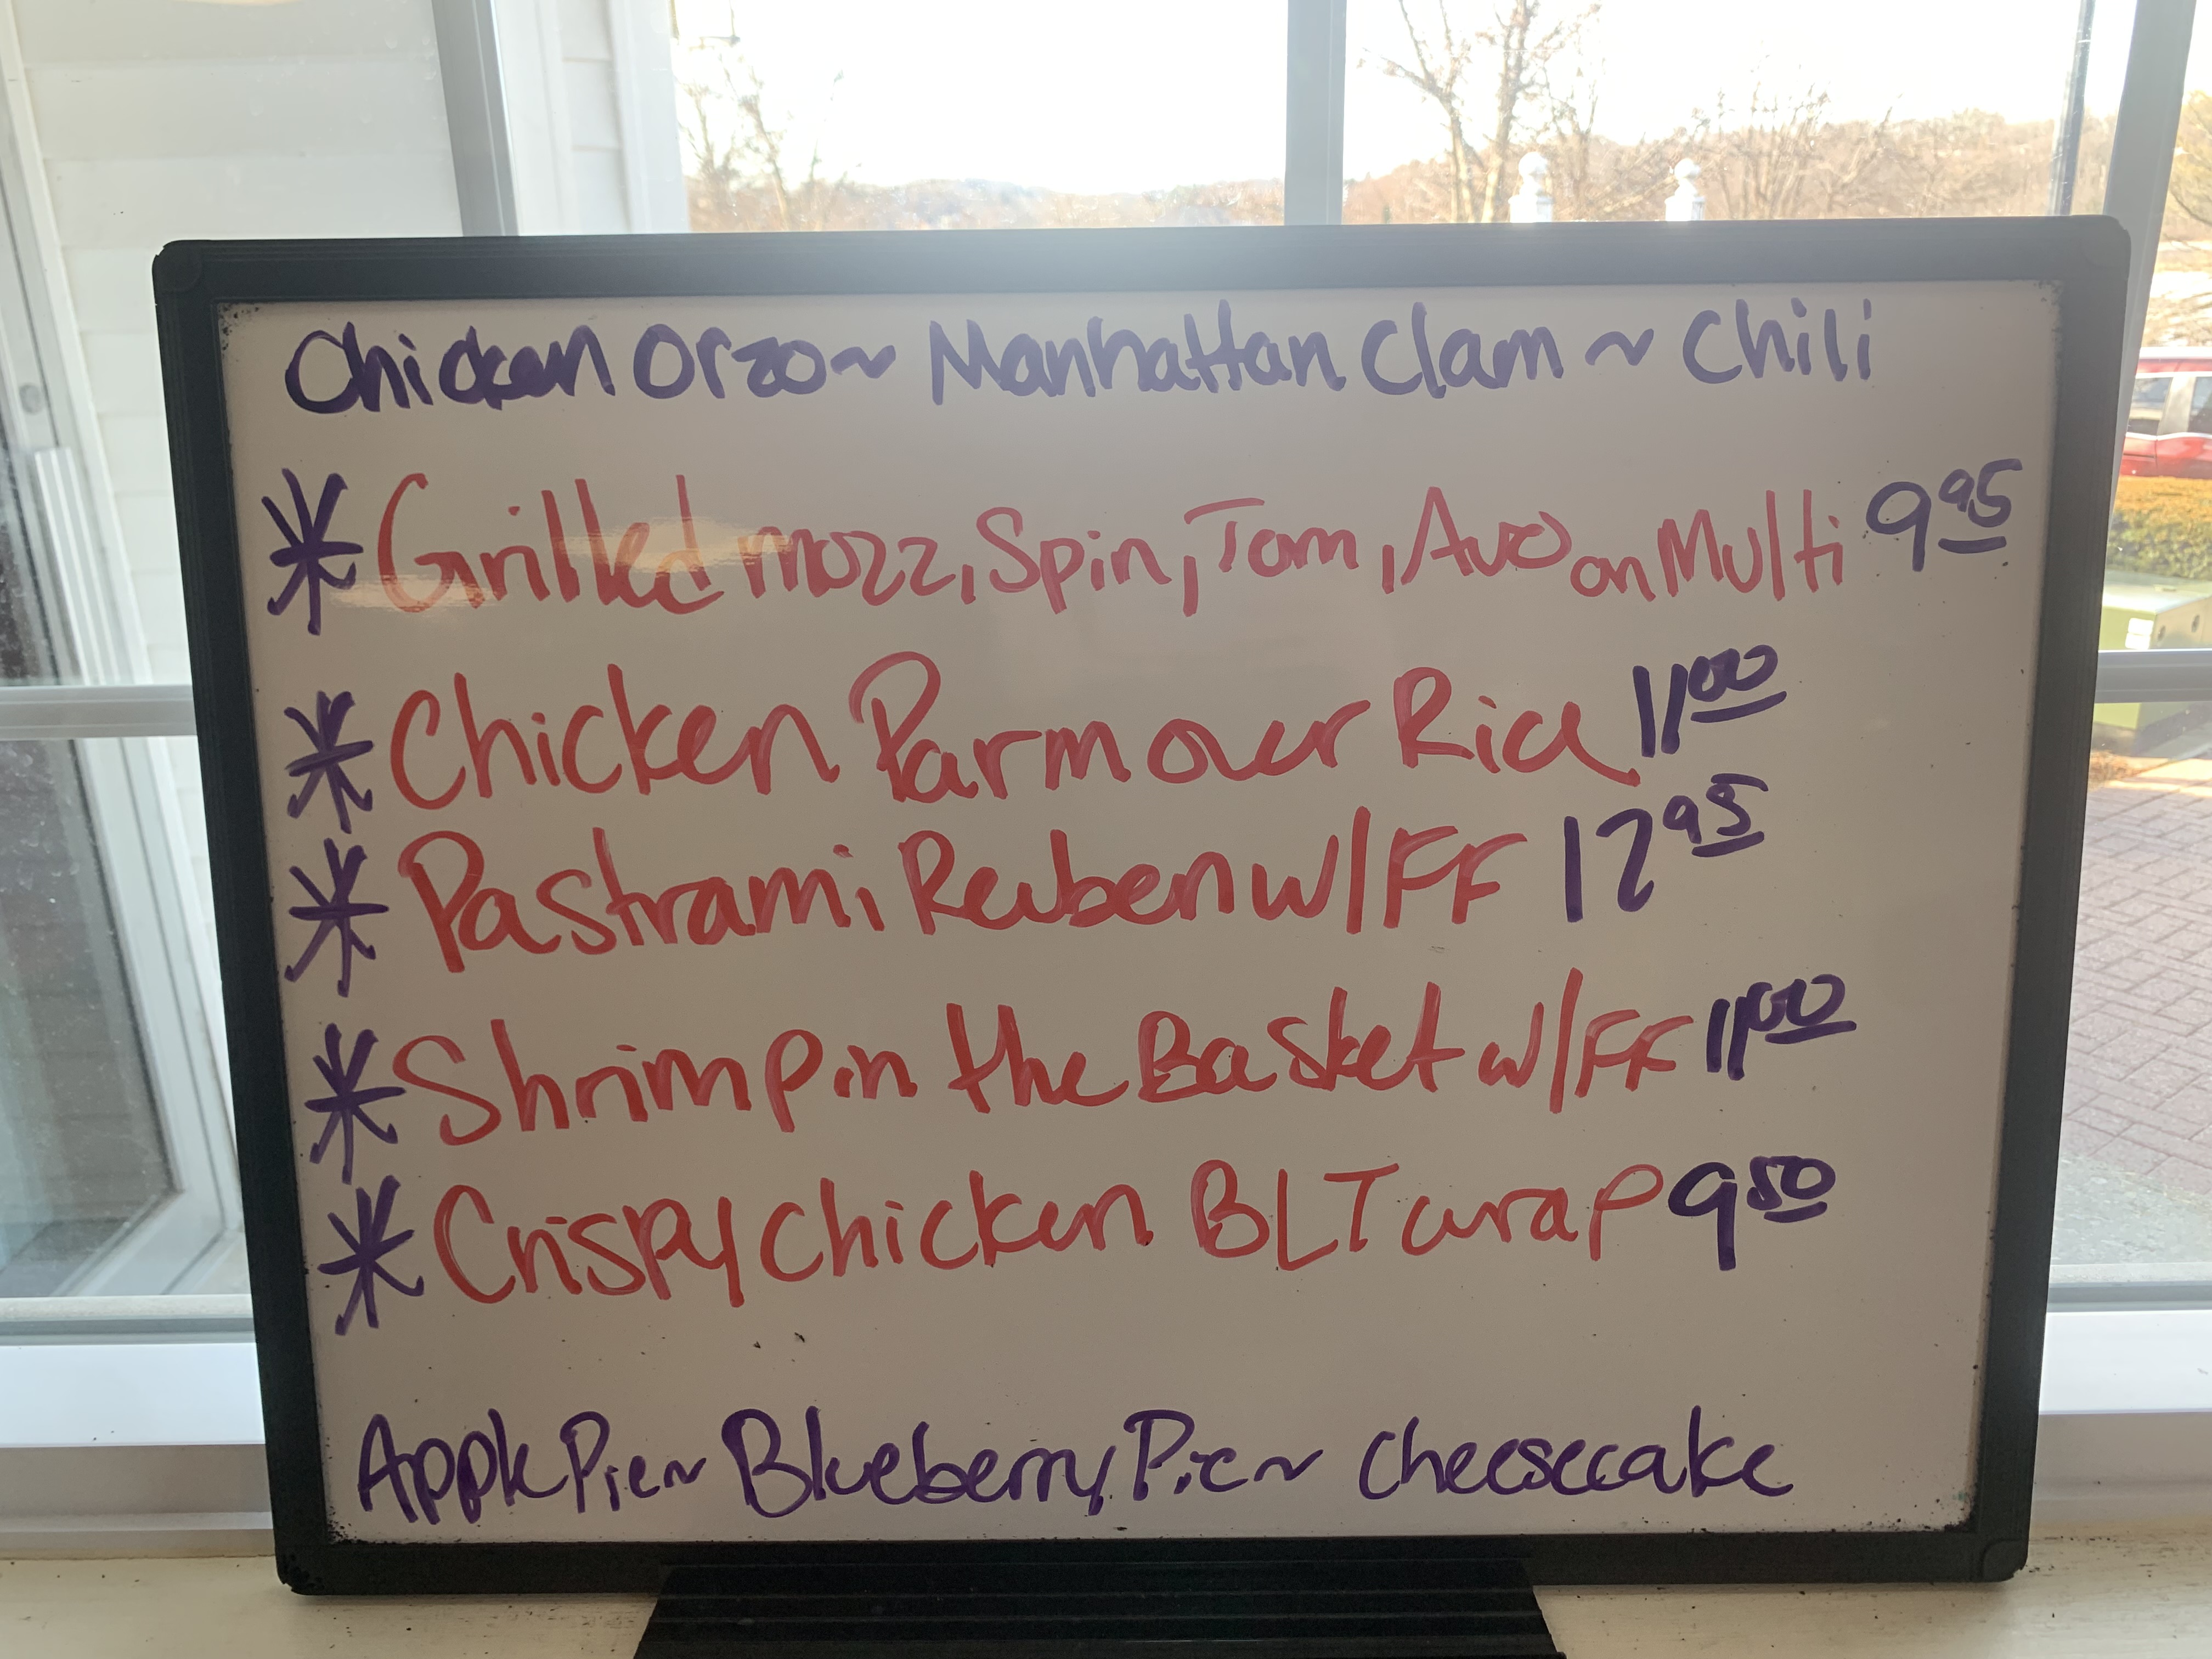 Chicken Orzo ~ Manhattan Clam ~ Chili
* Grilled mozz, Spin, Tom, Avo on Multi 9.95
* Chicken Parm over Rice 11.00
* Pastrami Reuben w/FF 12.95
* Shrimp in the Basket w/FF 11.00
* Crispy Chicken BLT wrap 9.50
Apple Pie ~ Blueberry Pie ~ Cheesecake